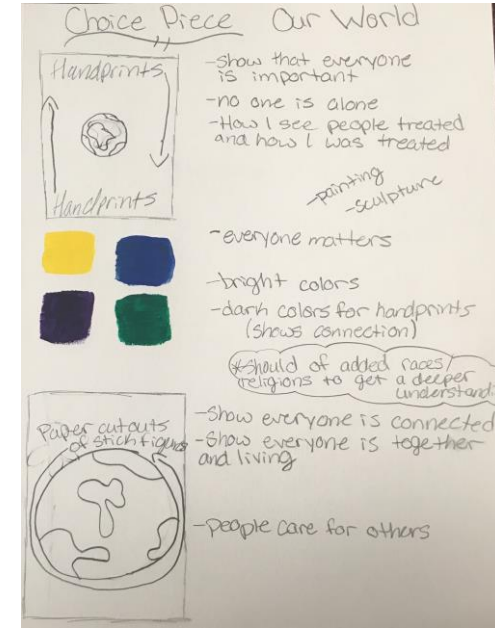 Choice Piece Our World
Handprints
Handprints
-show that everyone
is important
-no one is alone
-How I see people treated
and how I was treated
-painting
-sculpture
-everyone matters
-bright colors
-dark colors for handprints
(shows connection)
*should of added races/
religions to get a deeper
understand.
Paper cutouts
of stick figures
-show everyone is connected
-show everyone is together
and living
-people care for others